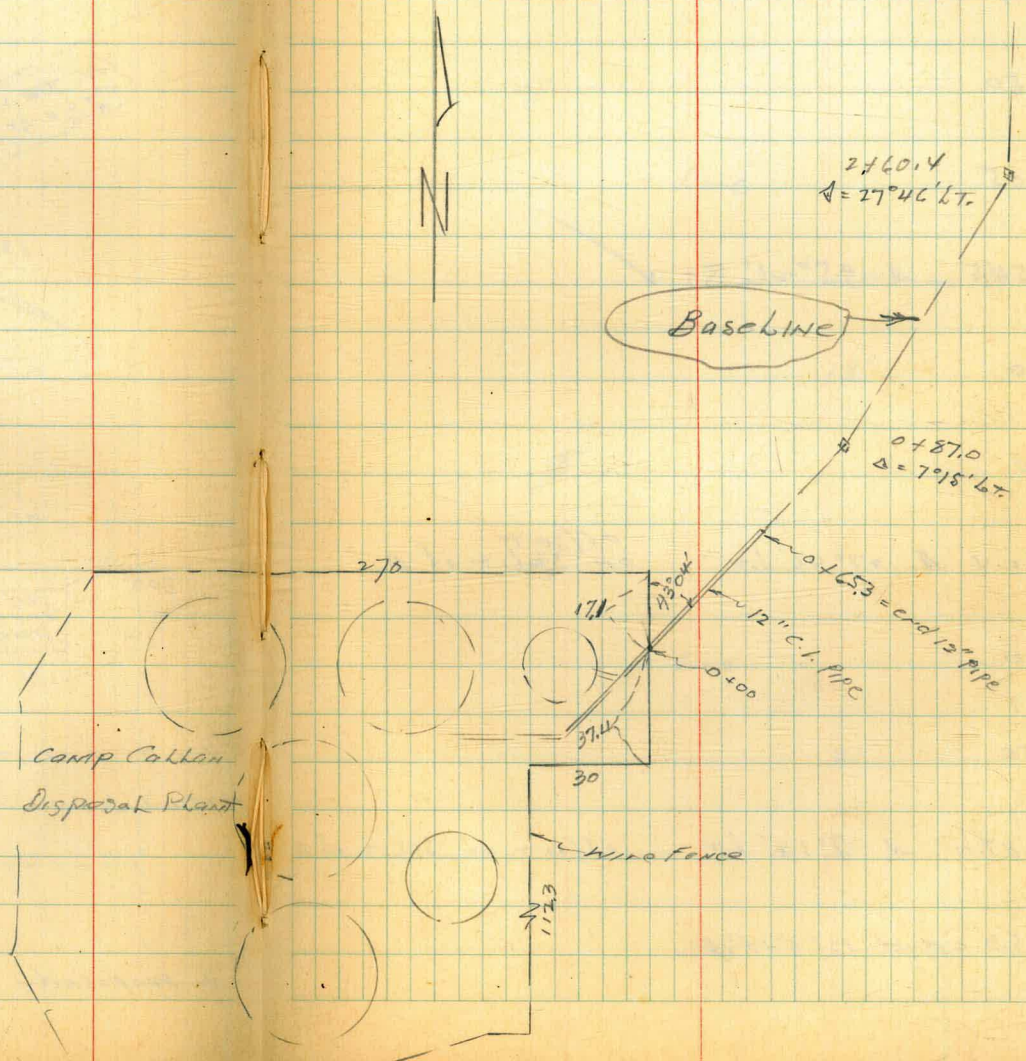 N
2+60.4
Δ = 27°46' LT.
BaseLine
0+87.0
Δ = 7°15' LT.
270
17.1
43°04'
0+65.3 = end 12" pipe
12" C.I. Pipe
0+00
37.4
30
Camp Callan
Disposal Plant
Wire Fence
112.3